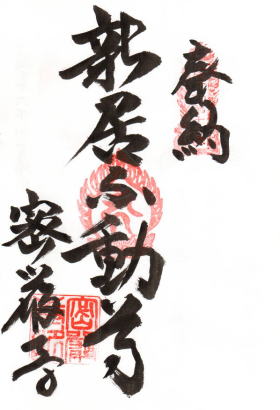 奉納
新居不動尊
密厳寺